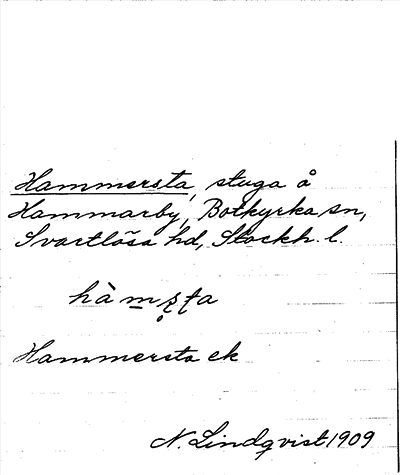 Hammersta, stuga å
Hammarby, Botkyrka sn,
Svartlösa hd, Stockh. l.
hàm̲ş̥ţa
Hammersta ek
N. Lindqvist 1909